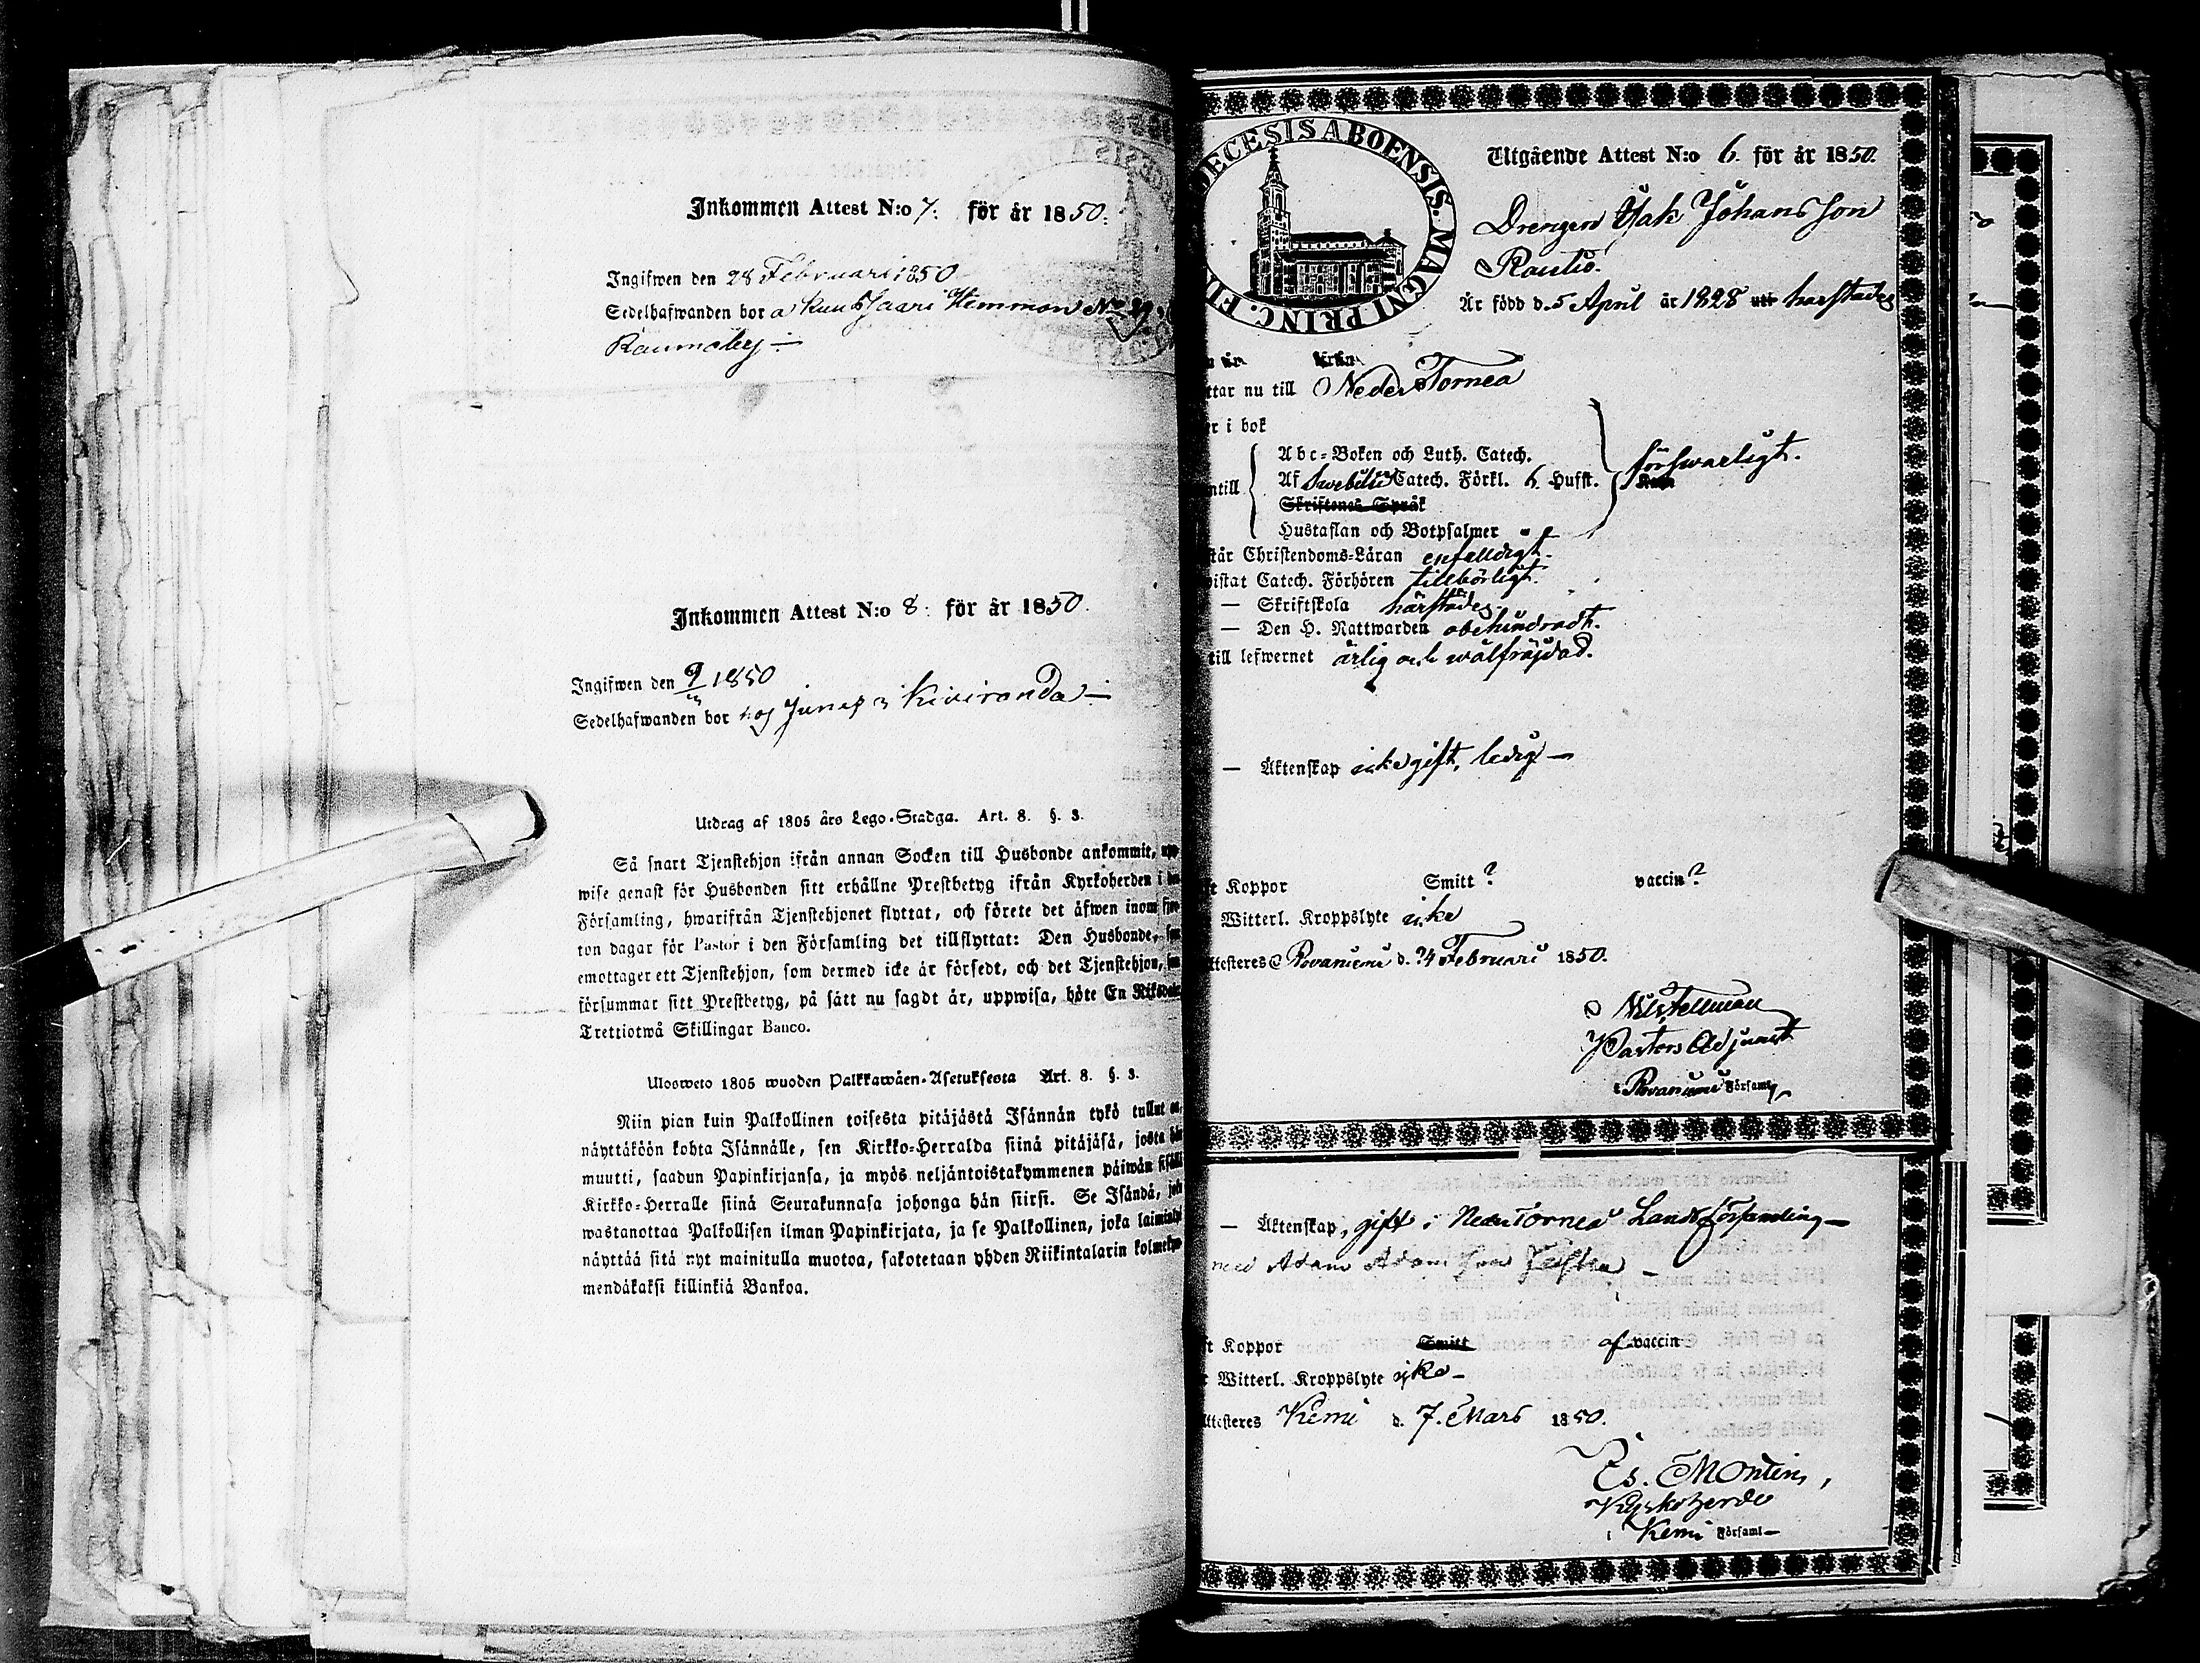 Inkommen Attest N:o 7. för år 1850.
Ingifwen den 28 Februari 1850
Sedelhafwanden bor a Kuusisaari Hemman No 29.
Raumoby
Inkommen Attest N:o 8. för år 1850.
Ingifwen den 9/3 1850
Sedelhafwanden bor hos Kiviranda
Utdrag af 1805 års Lego-Stadga. Art. 8. §. 3.
Så snart Tjenstehjon ifrån annan Socken till Husbonde ankommit, upp-
wise genast för Husbonden sitt erhållne Prestbetyg ifrån Kyrkoherden i den
Församling, hwarifrån Tjenstehjonet flyttat, och förete det äfwen inom fjor-
ton dagar för Pastor i den Församling det tillflyttat: Den Husbonde, som
emottager ett Tjenstehjon, som dermed icke är försedt, och det Tjenstehjon, som
försummar sitt Prestbetyg, på sätt nu sagdt är, uppwisa, böte En Riksdaler
Trettiotwå Skillingar Banco.
Ulosweto 1805 wuoden Palkkawäen-Asetuksesta Art. 8. §. 3.
Niin pian kuin Palkollinen toisesta pitäjästä Isännän tykö tullut on,
näyttäköön kohta Isännälle, sen Kirkko-Herralda siinä pitäjäsä, josta hän
muutti, saadun Papinkirjansa, ja myös neljäntoistakymmenen päiwän sisällä
Kirkko-Herralle siinä Seurakunnasa johonga hän siirsi. Se Isändä, joka
wastanottaa Palkollisen ilman Papinkirjata, ja se Palkollinen, joka laiminlyö
näyttää sitä nyt mainitulla muotoa, sakotetaan yhden Riikintalarin kolmekym-
mendäkaksi killinkiä Bankoa.
DECESIS ABOENSIS. MAGNI PRINC. FI
Utgående Attest N:o 6. för år 1850.
Drengen Isak Johansson
Rautio.
Är född d. 5 April år 1828 härstädes
ttar nu till Neder Tornea
r i bok
Abc-Boken och Luth. Catech.
försvarligt.
ntill Af Swebilii Catech. Förkl. 6 Hufst.
Skriftenes Språk
Hustaflan och Botpsalmer
står Christendoms-Läran enfaldigt.
vistat Catech. Förhören tillbörligt.
— Skriftskola härstädes
— Den H. Nattwarden obehindradt.
till lefwernet ärlig och wälfräjdad.
— Äktenskap icke gift, ledig —
ft Koppor Smitt? vaccin?
Witterl. Kroppslyte icke
ttesteres Rovaniemi d. 24 Februari 1850.
Nils Fellman
Pastors Adjunct
i Rovaniemi Församl.
— Äktenskap, gift i Neder Tornea Landsförsamling —
med Adam Adamsson
ft Koppor Smitt af vaccin
Witterl. Kroppslyte icke —
ttesteres Kemi d. 7. Mars 1850.
Es. Montin,
Kyrkoherde
i Kemi Församl —